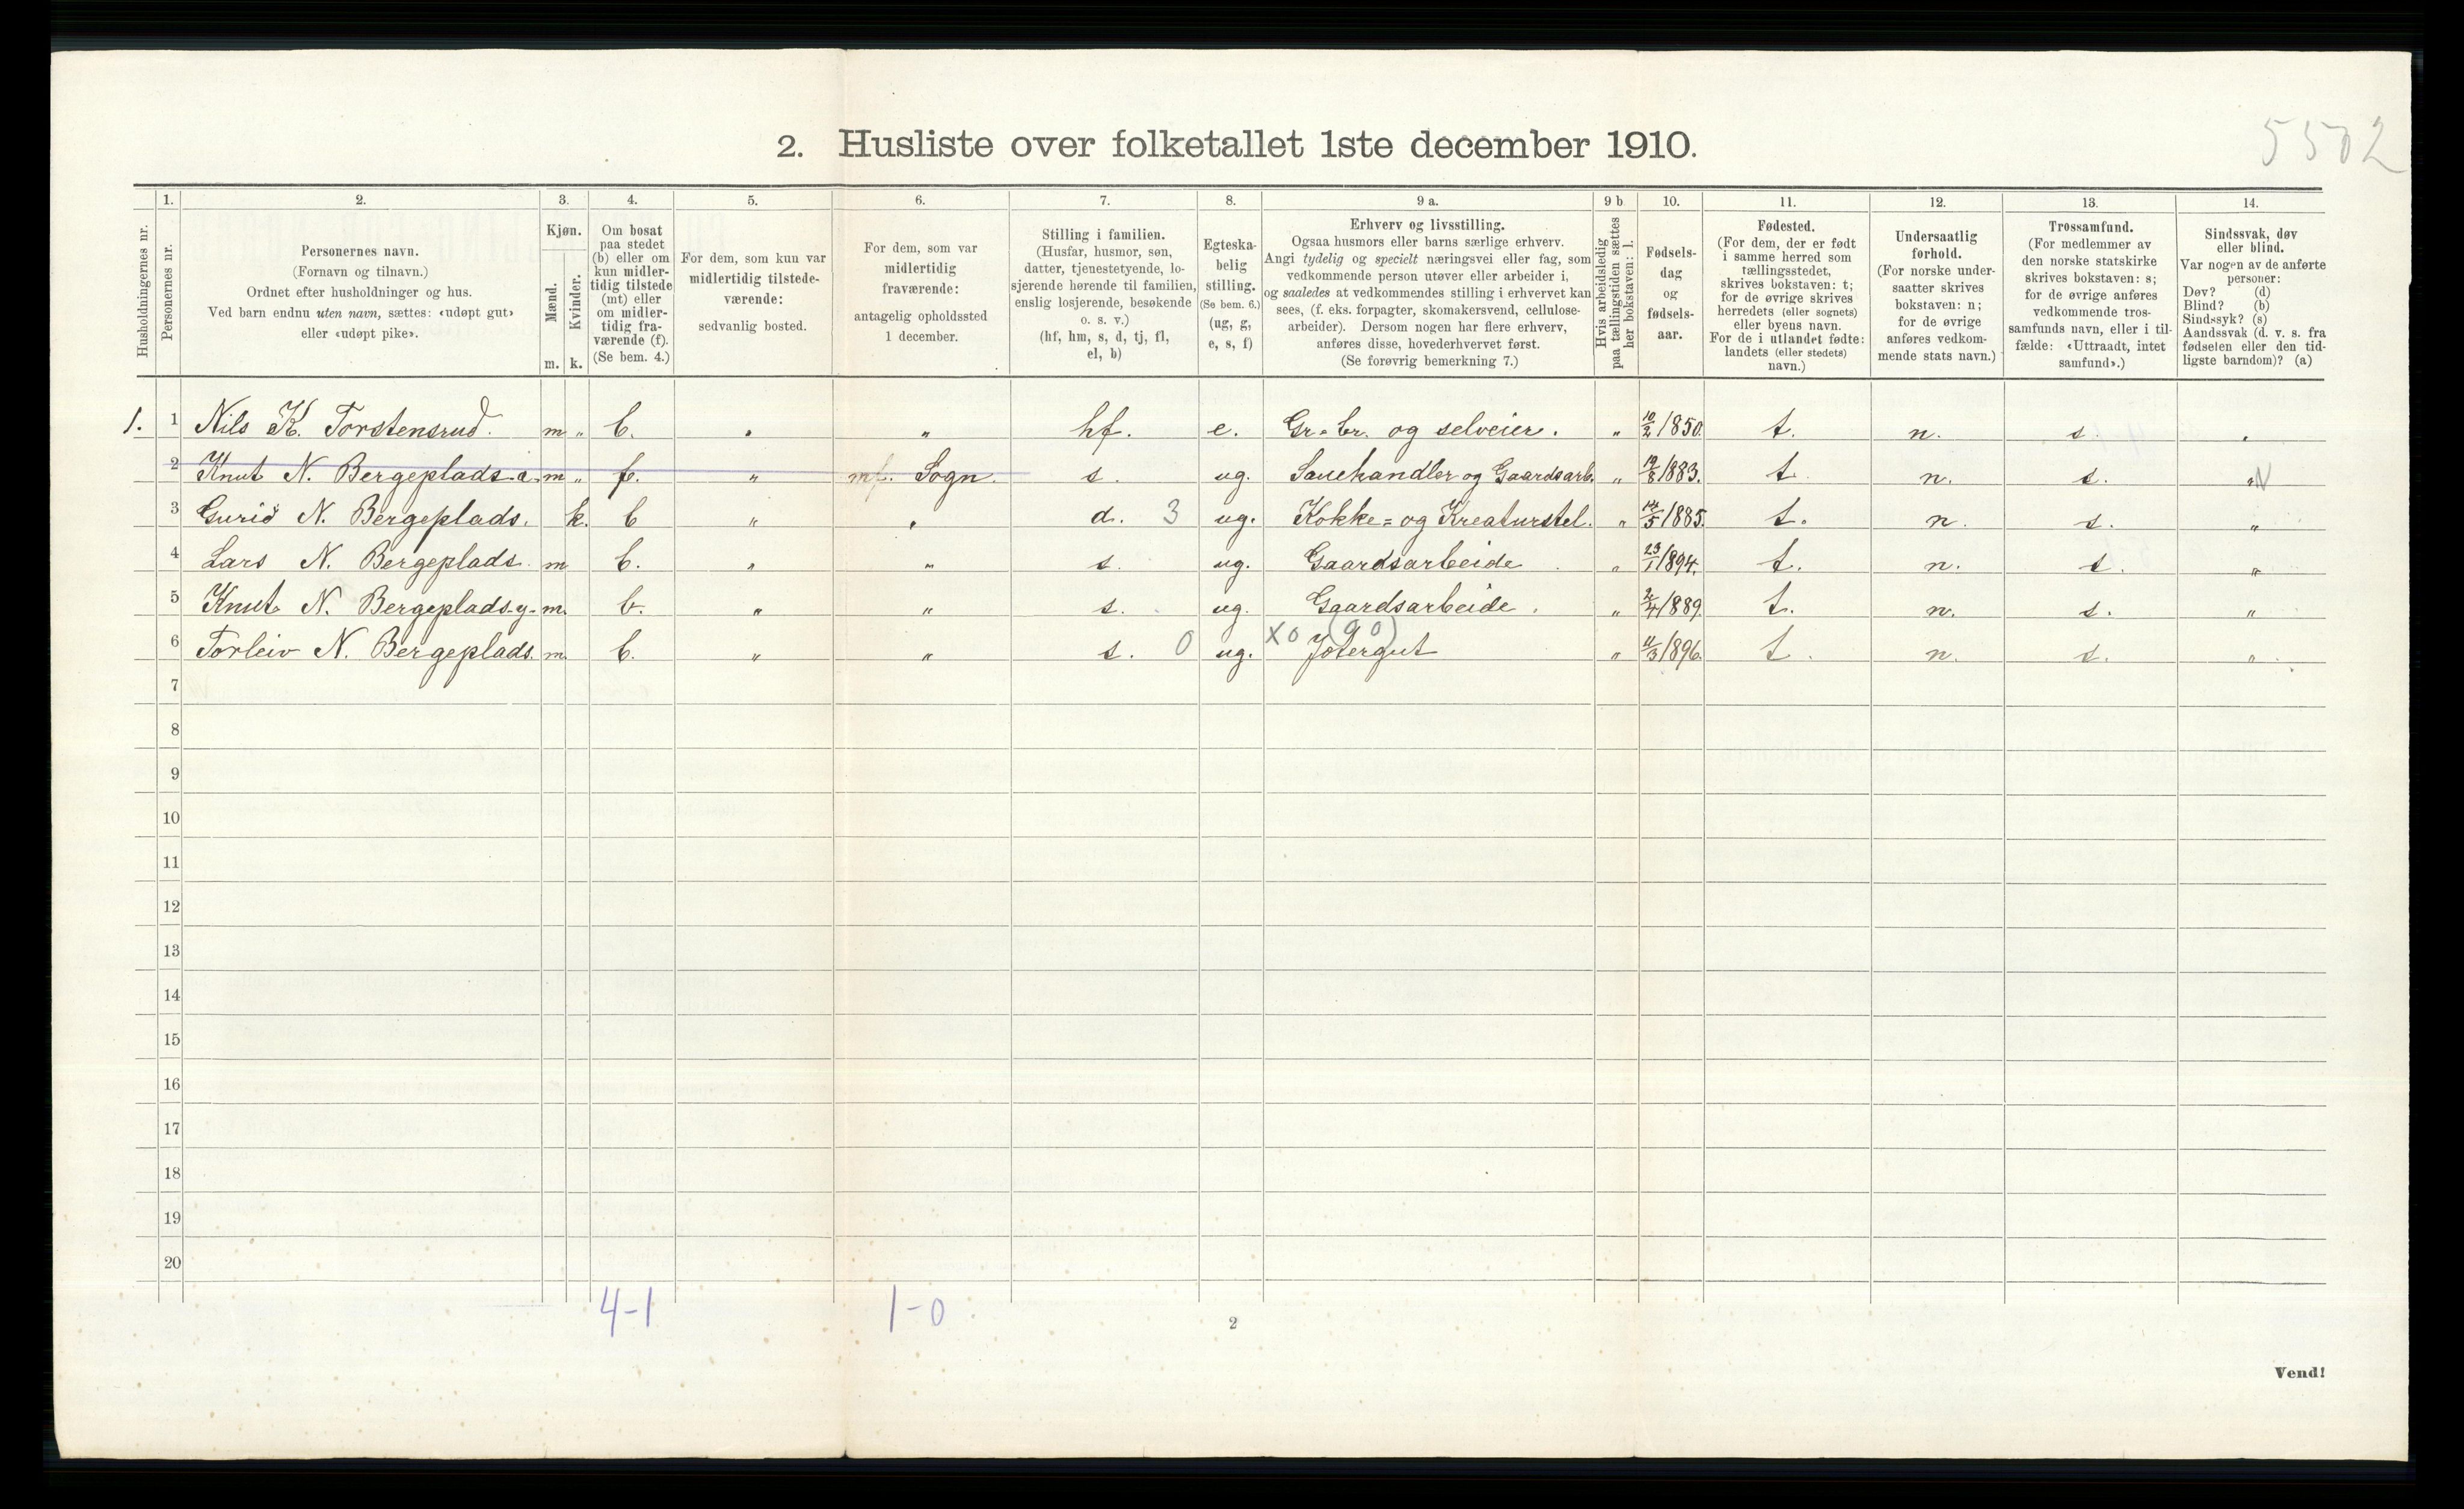 5502
2. Husliste over folketallet 1ste december 1910.
Husholdningernes nr.
1. Personernes nr.
2. Personernes navn. (Fornavn og tilnavn.) Ordnet efter husholdninger og hus. Ved barn endnu uten navn, sættes: «udøpt gut» eller «udøpt pike».
3. Kjøn. Mænd. m. Kvinder. k.
4. Om bosat paa stedet (b) eller om kun midler-tidig tilstede (mt) eller om midler-tidig fra-værende (f). (Se bem. 4.)
5. For dem, som kun var midlertidig tilstede-værende: sedvanlig bosted.
6. For dem, som var midlertidig fraværende: antagelig opholdssted 1 december.
7. Stilling i familien. (Husfar, husmor, søn, datter, tjenestetyende, lo-sjerende hørende til familien, enslig losjerende, besøkende o. s. v.) (hf, hm, s, d, tj, fl, el, b)
8. Egteska-belig stilling. (Se bem. 6.) (ug, g, e, s, f)
9 a. Erhverv og livsstilling. Ogsaa husmors eller barns særlige erhverv. Angi tydelig og specielt næringsvei eller fag, som vedkommende person utøver eller arbeider i, og saaledes at vedkommendes stilling i erhvervet kan sees, (f. eks. forpagter, skomakersvend, cellulose-arbeider). Dersom nogen har flere erhverv, anføres disse, hovederhvervet først. (Se forøvrig bemerkning 7.)
9 b. Hvis arbeidsledig paa tællingstiden sættes her bokstaven: l.
10. Fødsels-dag og fødsels-aar.
11. Fødested. (For dem, der er født i samme herred som tællingsstedet, skrives bokstaven: t; for de øvrige skrives herredets (eller sognets) eller byens navn. For de i utlandet fødte: landets (eller stedets) navn.)
12. Undersaatlig forhold. (For norske under-saatter skrives bokstaven: n; for de øvrige anføres vedkom-mende stats navn.)
13. Trossamfund. (For medlemmer av den norske statskirke skrives bokstaven: s; for de øvrige anføres vedkommende tros-samfunds navn, eller i til-fælde: «Uttraadt, intet samfund».)
14. Sindssvak, døv eller blind. Var nogen av de anførte personer: Døv? (d) Blind? (b) Sindssyk? (s) Aandssvak (d. v. s. fra fødselen eller den tid-ligste barndom)? (a)
1. 1 Nils K. Torstensrud. m " b. " " hf. e. Gr.br. og selveier. " 10/2 1850. t. n. s. "
2 Knut N. Bergeplads a. m " f. " mf. Sogn. s. ug. Sauehandler og Gaardsarb. " 19/8 1883. t. n. s. " N
3 Guriø N. Bergeplads. k. b " " d. 3 ug. Kokke= og Kreaturstel. " 14/5 1885. t. n. s. "
4 Lars N. Bergeplads. m b. " " s. ug. Gaardsarbeide " 23/1 1894. t. n. s. "
5 Knut N. Bergeplads y. m. b. " " s. ug. Gaardsarbeide. " 2/4 1889. t. n. s. "
6 Torleiv N. Bergeplads. m. b. " " s. 0 ug. x0 (90) Jotergut " 11/3 1896. t. n. s. "
7
8
9
10
11
12
13
14
15
16
17
18
19
20
4-1 1-0
2
Vend!